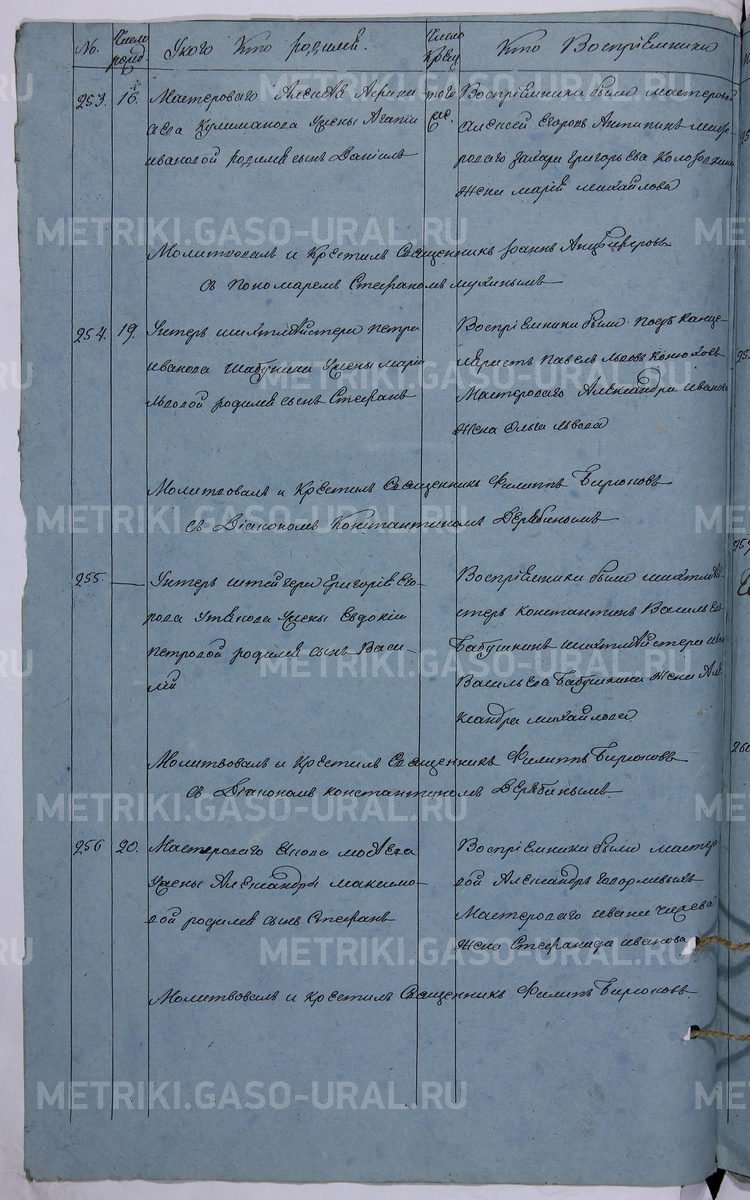 No. Число рожд У кого Кто родился. Число Крещ Кто Воспріемники
253. 16. Мастероваго Алексѣя
Кулиманова У жены Агапіи
ивановой родился сынъ Даніилъ
того же.
Воспріемники были мастеровой
алексей Егоровъ Антипинъ
захара григорьева
Жена марія михайлова
Молитвовалъ и Крестилъ Священникъ Іоаннъ
съ Пономаремъ Стефаномъ
254. 19. Унтеръ шихтмейстера петра
иванова Бабушкина У жены маріи
львовой родился сынъ Стефанъ
Воспріемники были
павелъ львовъ
Мастероваго Александра иванова
Жена Ольга львова
Молитвовалъ и Крестилъ Священникъ Филиппъ Бирюковъ
съ Діакономъ Константиномъ Дерябинымъ
255 — Унтеръ штейгера григорія Его-
рова У жены Евдокіи
петровой родился сынъ Васи-
лій
Воспріемники были шихтмей-
стеръ константинъ Васильевъ
Бабушкинъ шихтмейстера
Васильева Бабушкина Жена Але-
ксандра михайлова
Молитвовалъ и Крестилъ Священникъ Филиппъ Бирюковъ
съ Діакономъ константиномъ Дерябинымъ.
256 20. Мастероваго мосѣева
У жены Александры максимо-
вой родился сынъ Стефанъ
Воспріемники были мастеро-
вой Александръ
Мастероваго ивана
Жена Стефанида иванова
Молитвовалъ и Крестилъ Священникъ Филиппъ Бирюковъ
METRIKI.GASO-URAL.RU